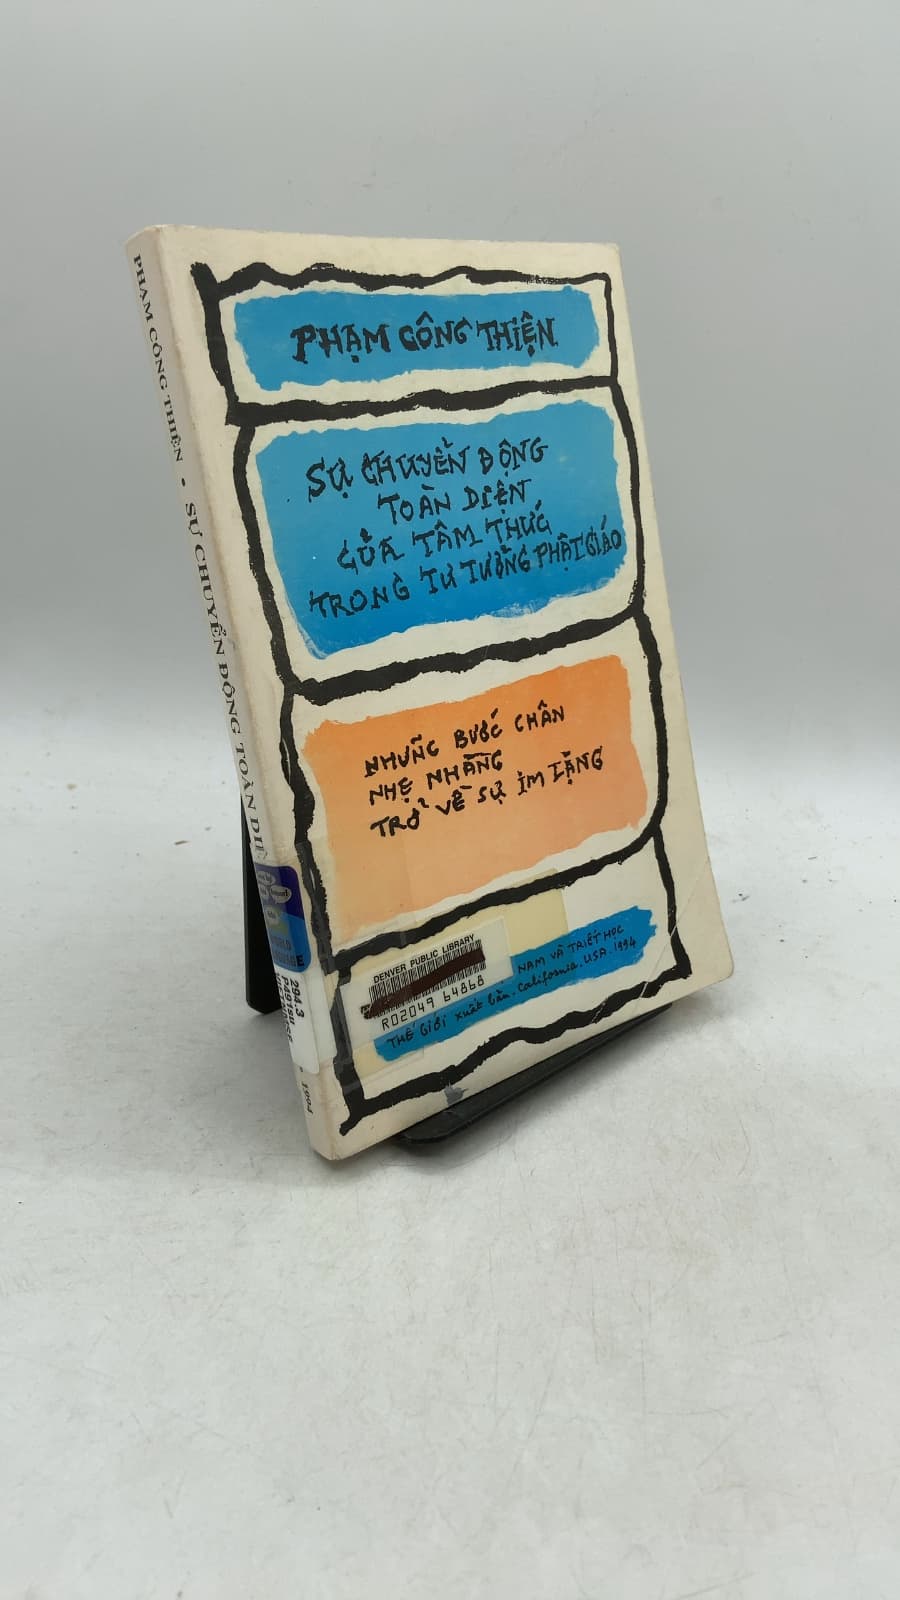 PHẠM CÔNG THIỆN
SỰ CHUYỂN ĐỘNG
TOÀN DIỆN
CỦA TÂM THỨC
TRONG TƯ TƯỞNG PHẬT GIÁO
NHỮNG BƯỚC CHÂN
NHẸ NHÀNG
TRỞ VỀ SỰ IM LẶNG
DENVER PUBLIC LIBRARY
R02049 64868
NAM VÀ TRIẾT HỌC
THẾ GIỚI xuất bản. California. USA. 1994
PHẠM CÔNG THIỆN • SỰ CHUYỂN ĐỘNG TOÀN DIỆ
294.3
1994